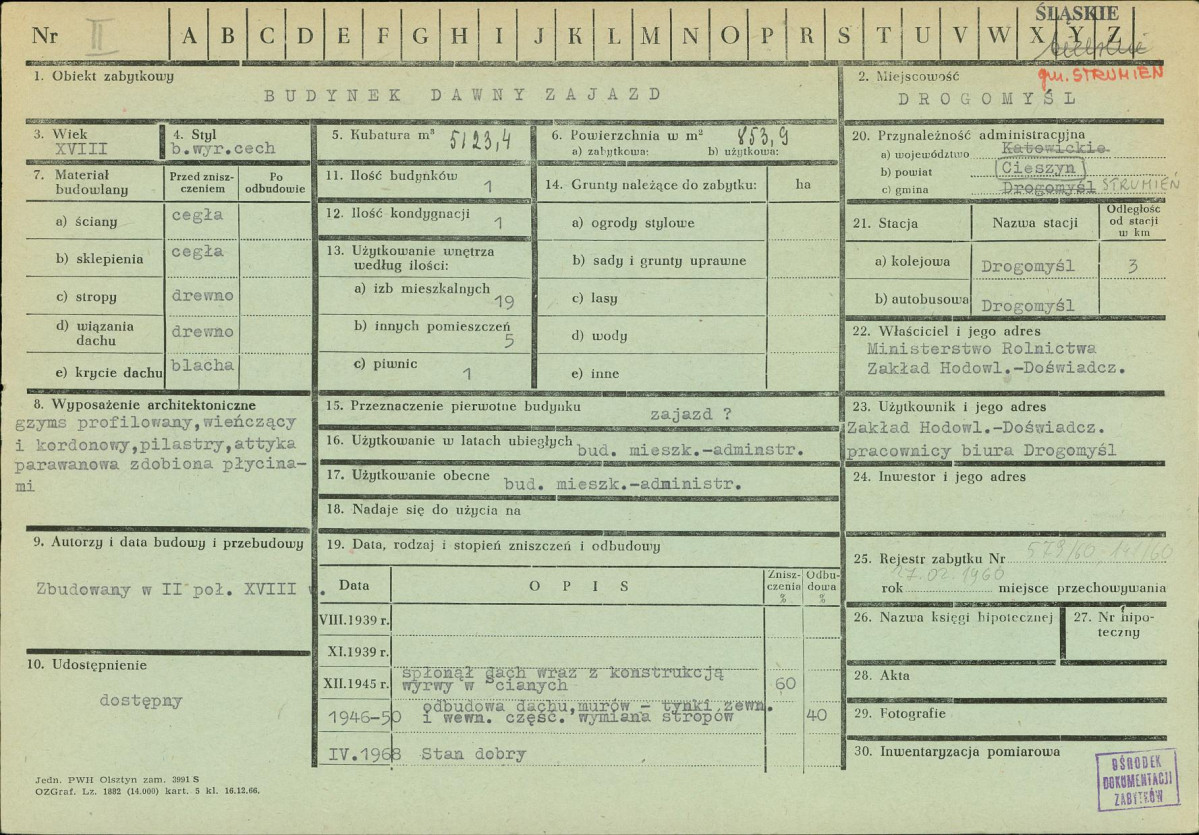 Nr II A B C D E F G H I J K L M N O P R S T U V W X Y Z
ŚLĄSKIE
gm. STRUMIEŃ
1. Obiekt zabytkowy
BUDYNEK DAWNY ZAJAZD
2. Miejscowość
DROGOMYŚL
3. Wiek
XVIII
4. Styl
b.wyr.cech
5. Kubatura m³ 5123,4
6. Powierzchnia w m² 853,9
a) zabytkowa: b) użytkowa:
20. Przynależność administracyjna
a) województwo Katowickie
b) powiat Cieszyn
c) gmina Drogomyśl STRUMIEŃ
7. Materiał budowlany
Przed zniszczeniem
Po odbudowie
a) ściany cegła
b) sklepienia cegła
c) stropy drewno
d) wiązania dachu drewno
e) krycie dachu blacha
11. Ilość budynków 1
12. Ilość kondygnacji 1
13. Użytkowanie wnętrza
według ilości:
a) izb mieszkalnych 19
b) innych pomieszczeń 5
c) piwnic 1
14. Grunty należące do zabytku: ha
a) ogrody stylowe
b) sady i grunty uprawne
c) lasy
d) wody
e) inne
21. Stacja Nazwa stacji Odległość od stacji w km
a) kolejowa Drogomyśl 3
b) autobusowa Drogomyśl
22. Właściciel i jego adres
Ministerstwo Rolnictwa
Zakład Hodowl.-Doświadcz.
8. Wyposażenie architektoniczne
gzyms profilowany,wieńczący
i kordonowy,pilastry,attyka
parawanowa zdobiona płycina-
mi
15. Przeznaczenie pierwotne budynku zajazd ?
16. Użytkowanie w latach ubiegłych bud. mieszk.-adminstr.
17. Użytkowanie obecne bud. mieszk.-administr.
18. Nadaje się do użycia na
23. Użytkownik i jego adres
Zakład Hodowl.-Doświadcz.
pracownicy biura Drogomyśl
24. Inwestor i jego adres
9. Autorzy i data budowy i przebudowy
Zbudowany w II poł. XVIII w.
10. Udostępnienie
dostępny
19. Data, rodzaj i stopień zniszczeń i odbudowy
Data OPIS Zniszczenia % Odbudowa %
VIII.1939 r.
XI.1939 r.
XII.1945 r. spłonął dach wraz z konstrukcją
wyrwy w cianych 60
1946-50 odbudowa dachu,murów - tynki zewn.
i wewn. część. wymiana stropów 40
IV.1968 Stan dobry
25. Rejestr zabytku Nr 573/60
27.02.1960
rok miejsce przechowywania
26. Nazwa księgi hipotecznej
27. Nr hipo-
teczny
28. Akta
29. Fotografie
30. Inwentaryzacja pomiarowa
OŚRODEK
DOKUMENTACJI
ZABYTKÓW
Jedn. PWH Olsztyn zam. 3991 S
OZGraf. Lz. 1882 (14.000) kart. 5 kl. 16.12.66.